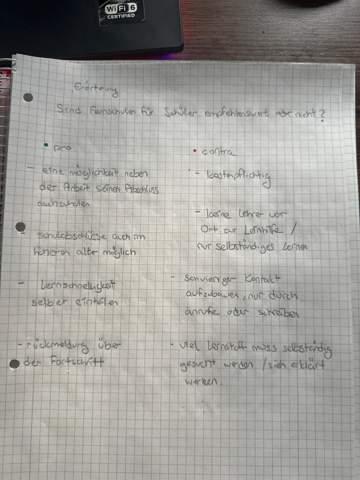 WiFi 6
CERTIFIED
Erörterung
Sind Fernschulen für Schüler empfehlenswert oder nicht?
• pro
- eine möglichkeit neben
der Arbeit seinen Abschluss
nachzuholen
- Schulabschlüsse auch im
höheren alter möglich
- Lernschnelligkeit
selber einteilen
- rückmeldung über
den Fortschritt
• contra
- kostenpflichtig
- keine Lehrer vor
Ort zur Lernhilfe /
nur selbständiges Lernen
- schwieriger Kontakt
aufzubauen, nur durch
anrufe oder schreiben
- viel Lernstoff muss selbständig
gesucht werden / sich erklärt
werden.